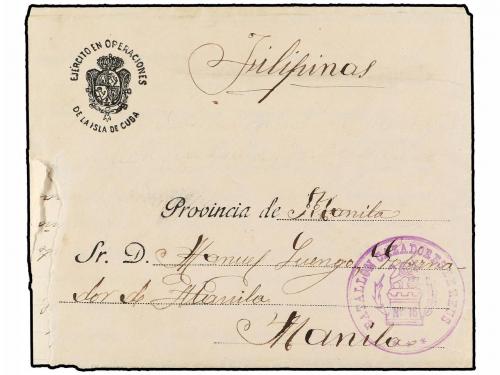 EJÉRCITO EN OPERACIONES
DE LA ISLA DE CUBA
Filipinas
Provincia de Manila
Sr. D. Manuel Luengo, Goberna-
dor de Manila
Manila
BATALLÓN CAZADORES DE REUS
Nº 16